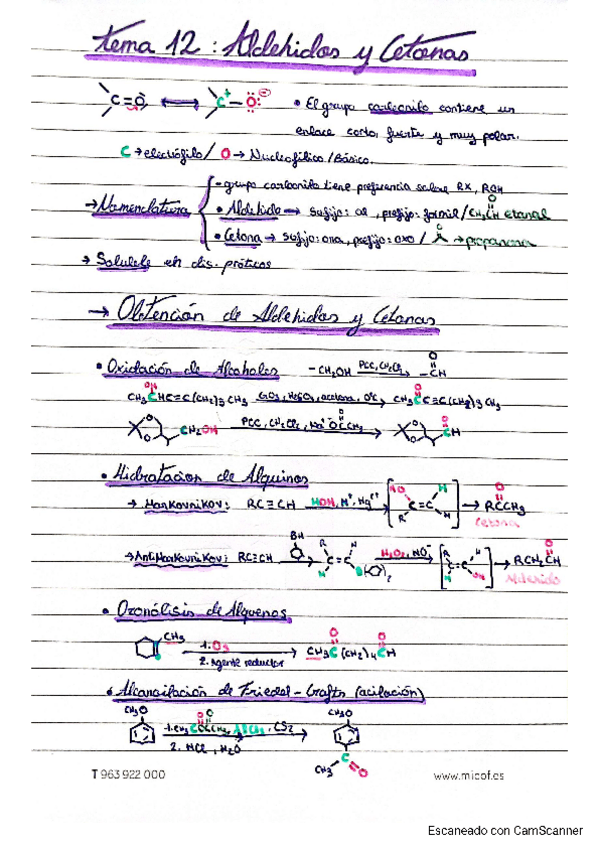 tema 12 : Aldehidos y Cetonas
C=O ⟷ C⁺ – O⁻ • El grupo carbonilo contiene un
enlace corto, fuerte y muy polar.
C → electrófilo / O → Nucleofílico / Básico.
- grupo carbonilo tiene preferencia sobre RX, ROH
→ Nomenclatura • Aldehido → sufijo: al, prefijo: formil / CH₃CH O etanal
• Cetona → sufijo: ona, prefijo: oxo / O → propanona
→ Soluble en dis. próticos
→ Obtención de Aldehidos y Cetonas
• Oxidación de Alcoholes -CH₂OH PCC, CH₂Cl₂ → -CH O
OH CH₃CHC≡C(CH₂)₃CH₃ CrO₃, H₂SO₄, acetona, 0ºC → CH₃CC≡C(CH₂)₃CH₃ O
O O CH₂OH PCC, CH₂Cl₂, Na⁺ ⁻OCCH₃ O → O O CH O
• Hidratación de Alquinos
→ Markovnikov: RC≡CH HOH, H⁺, Hg⁺⁺ → [HO H C=C R H] → RCCH₃ O
Cetona
→ AntiMarkovnikov: RC≡CH BH → R H C=C H B( )₂ H₂O₂, HO⁻ → [R H C=C H OH] → RCH₂CH O
Aldehido
• Ozonólisis de Alquenos
CH₃ 1. O₃ → CH₃C(CH₂)₄CH O O
2. Agente reductor
• Alcancilación de Friedel-Crafts (acilación)
CH₃O 1. CH₃COCCH₃ O O, AlCl₃, CS₂ → CH₃O
2. HCl, H₂O
CH₃ C O
T 963 922 000 www.micof.es
Escaneado con CamScanner